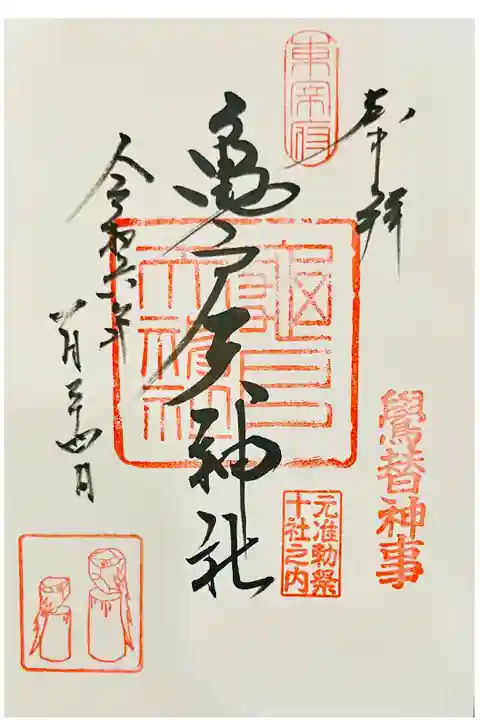 奉拝
東宰府
亀戸天神社
亀戸天神社
鷽替神事
元准勅祭
十社之内
令和六年
一月二十四日